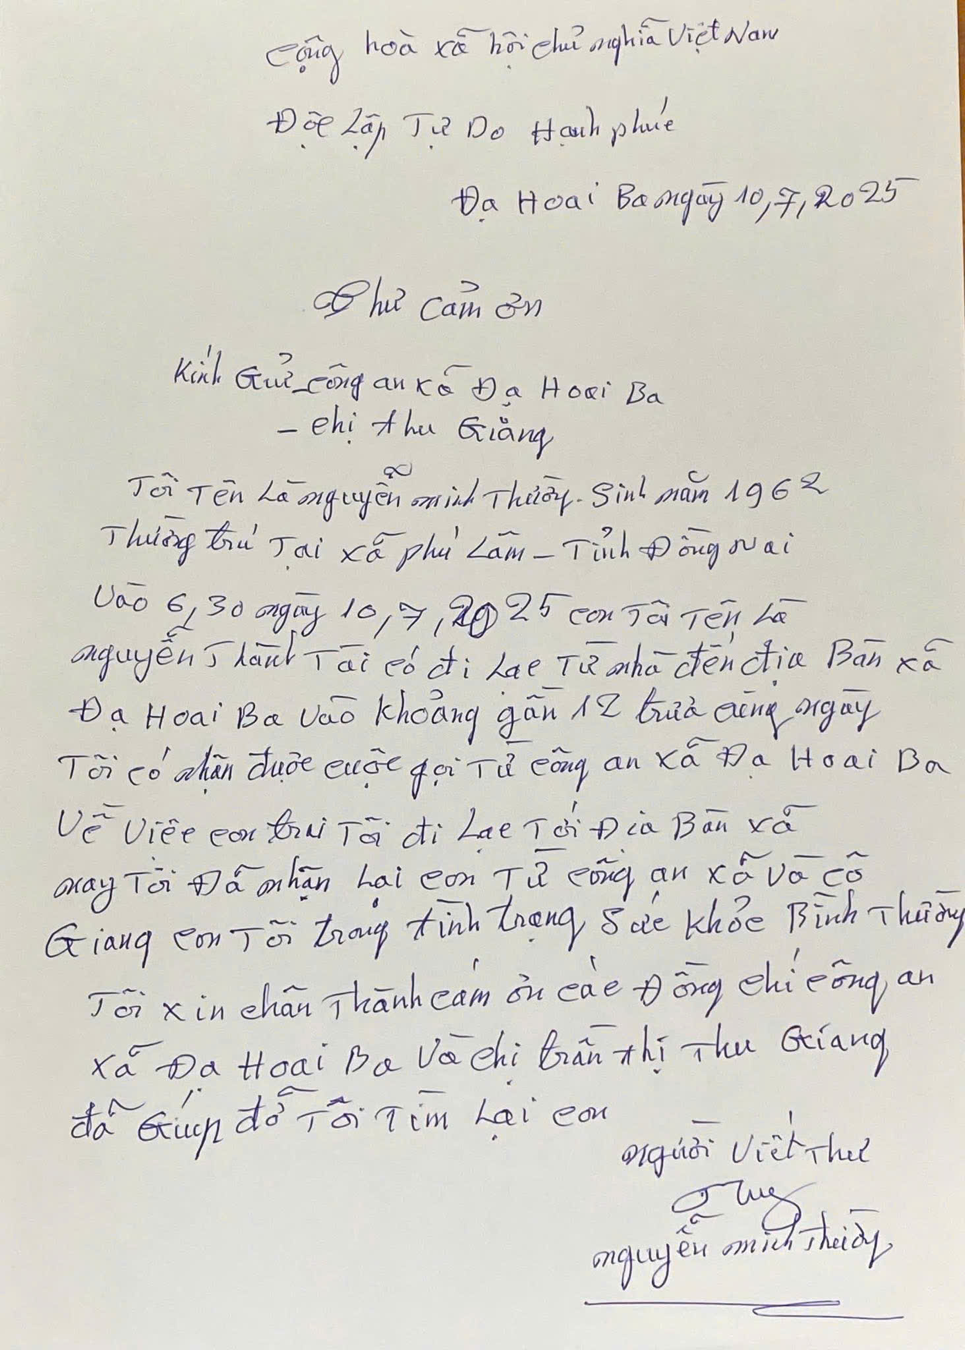 cộng hoà xã hội chủ nghĩa Việt Nam
Độc Lập Tự Do Hạnh phúc
Đạ Hoai Ba ngày 10,7,2025
Thư cảm ơn
Kính Gửi - công an xã Đạ Hoai Ba
- chị thu Giang
Tôi Tên Là nguyễn minh Thường. Sinh năm 1962
Thường trú Tại xã phú Lâm - Tỉnh Đồng Nai
Vào 6,30 ngày 10,7,2025 con Tôi Tên Là
nguyễn Thành Tài có đi Lạc Từ nhà đến địa Bàn xã
Đạ Hoai Ba vào khoảng gần 12 trưa cùng ngày
Tôi có nhận được cuộc gọi Từ công an xã Đạ Hoai Ba
Về Việc con trai Tôi đi Lạc Tới Địa Bàn xã
nay Tôi Đã nhận Lại con Từ công an xã và cô
Giang con Tôi trong tình trạng Sức khỏe Bình Thường
Tôi xin chân Thành cảm ơn các Đồng chí công an
xã Đạ Hoai Ba Và chị trần thị Thu Giang
đã Giúp đỡ Tôi Tìm Lại con
người Viết Thư
nguyễn minh Thường